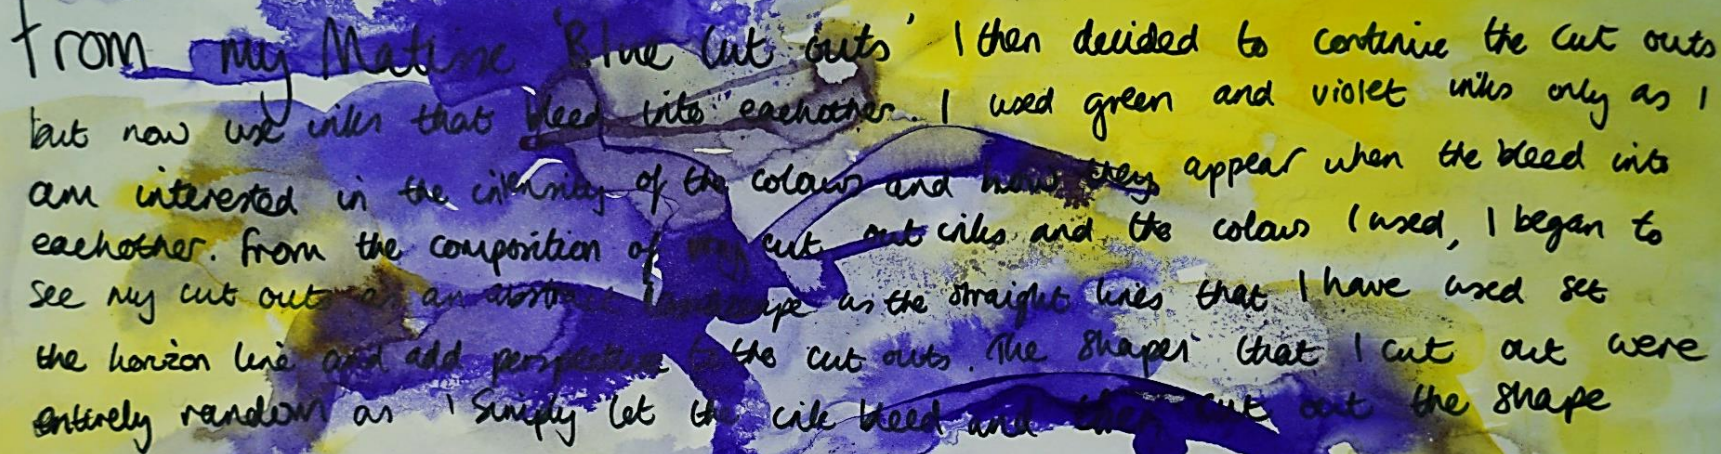 From my Matisse 'Blue Cut outs' I then decided to continue the cut outs
but now use inks that bleed into eachother. I used green and violet inks only as I
am interested in the intensity of the colours and how they appear when the bleed into
eachother. From the composition of my cut out inks and the colours I used, I began to
see my cut outs as an abstract landscape as the straight lines that I have used set
the horizon line and add perspective to the cut outs. The shapes that I cut out were
entirely random as I simply let the ink bleed and then cut out the shape